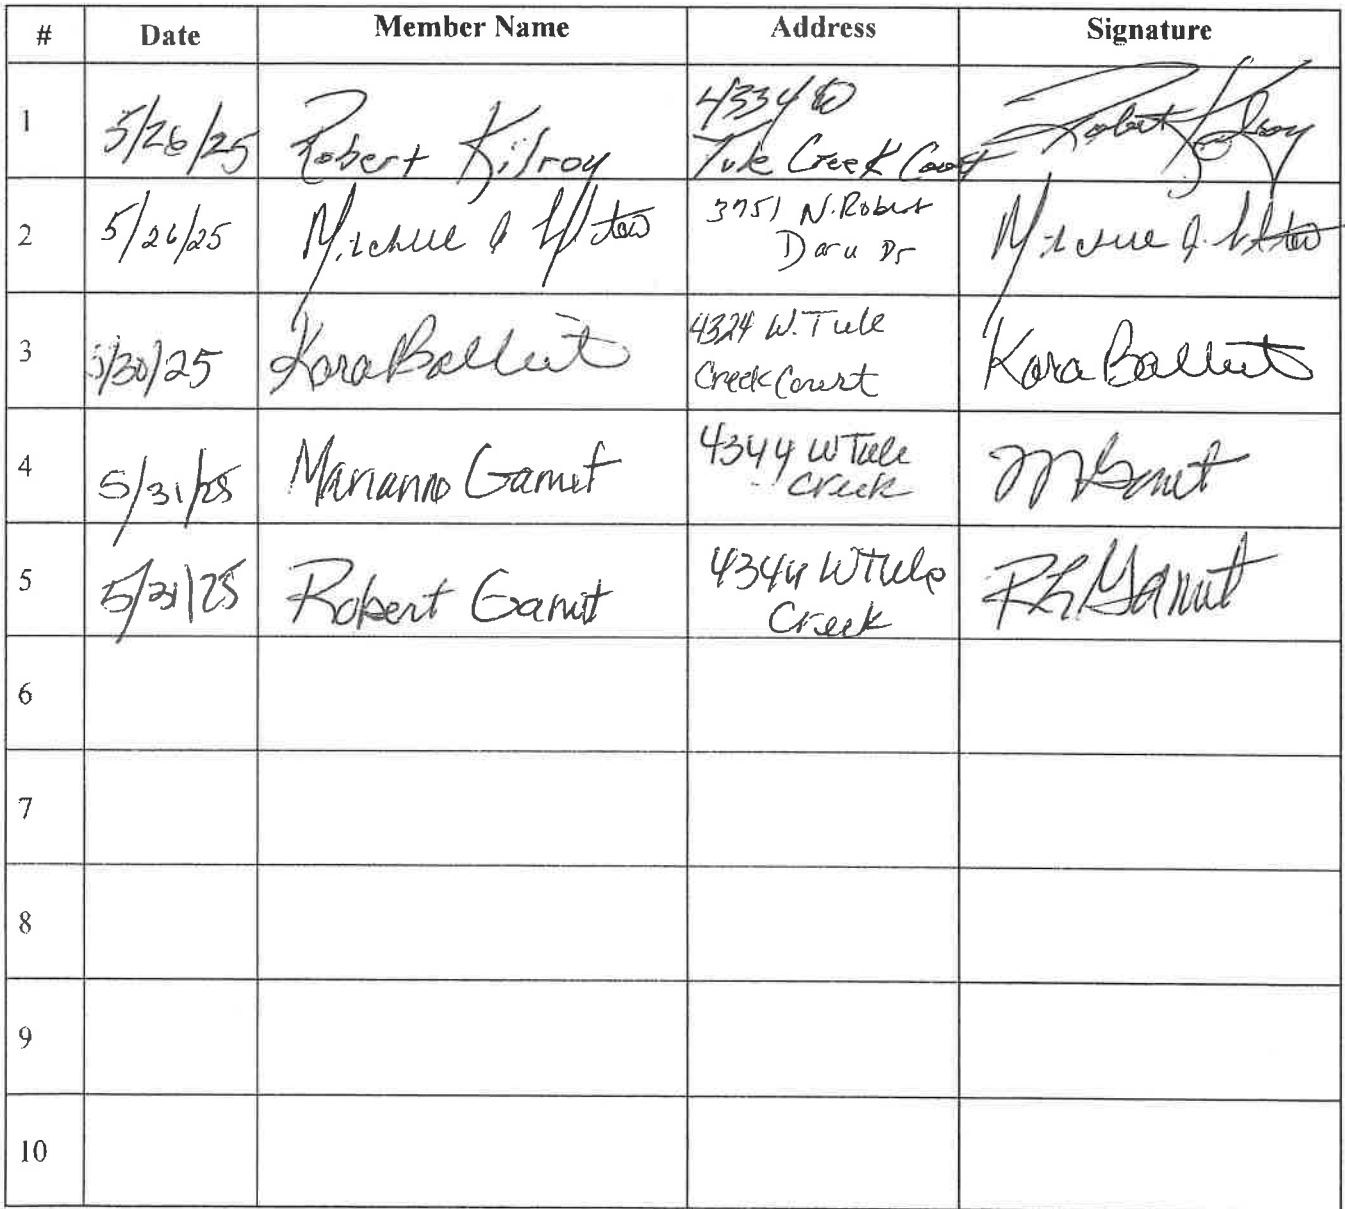 # Date Member Name Address Signature
1 5/26/25 Robert Kilroy 4334 W Tule Creek Court Robert Kilroy
2 5/26/25 3751 N. Robert Dr
3 5/30/25 Kara 4324 W. Tule Creek Court Kara
4 5/31/25 Marianne Gamet 4344 W Tule Creek
5 5/31/25 Robert Gamet 4344 W Tule Creek
6
7
8
9
10